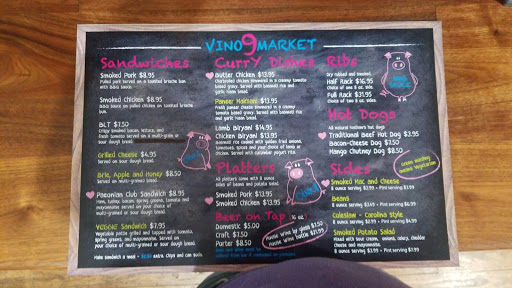 VINO 9 MARKET
Sandwiches
Smoked Pork $8.95
Pulled pork served on a toasted brioche bun
with BBQ sauce
Smoked Chicken $8.95
BBQ sauce on pulled chicken on toasted brioche
bun.
BLT $7.50
Crispy smoked bacon, lettuce, and
fresh tomato served on a multi-grain or
sour dough bread.
Grilled Cheese $4.95
Served on sour dough bread.
Brie, Apple and Honey $8.50
Served on multi-grained bread.
Paeonian Club Sandwich $8.95
Ham, turkey, bacon, spring greens, tomato and
mayonnaise served on your choice of
multi-grained or sour dough bread.
VEGGIE Sandwich $7.95
Vegetable patty grilled and topped with tomato,
spring greens, and mayonnaise. Served on
your choice of multi-grained or sour dough bread.
Make sandwich a meal - extra. Chips and can Soda.
Curry Dishes
Butter Chicken $13.95
Charbroiled chicken simmered in a creamy tomato
based gravy. Served with basmati rice and
garlic naan bread.
Paneer Makhani $13.95
Fresh paneer cheese simmered in a creamy
tomato based gravy. Served with basmati rice
and garlic naan bread.
Lamb Biryani $14.95
Chicken Biryani $13.95
Basmati rice cooked with golden fried onions,
tomatoes, spices and your choice of lamb or
chicken. Served with cucumber yogurt dip.
Platters
All platters come with 8 ounce
sides of beans and potato salad.
Smoked Pork $13.95
Smoked Chicken $13.95
Beer on Tap (16 oz)
Domestic $5.00
Craft $7.50
Porter $8.50
House wine by glass $7.50
House wine bottle $21.95
Ribs
Dry rubbed and smoked
Half Rack $16.95
Choice of one 8 oz. side.
Full Rack $31.95
Choice of two 8 oz. sides.
Hot Dogs
All natural Nathan's hot dogs
Traditional Beef Hot Dog $3.95
Bacon-Cheese Dog $7.50
Mango Chutney Dog $8.50
Green wording
means Vegetarian
Sides
Smoked Mac and Cheese
8 ounce serving $3.99 - Pint serving $7.99
Beans
8 ounce serving $2.99 - Pint serving $5.99
Coleslaw - Carolina Style
8 ounce serving $2.99 - Pint serving $5.99
Smoked Potato Salad
Mixed with sour cream, onions, celery, cheddar
cheese and mayonnaise.
8 ounce serving $3.99 - Pint serving $7.99